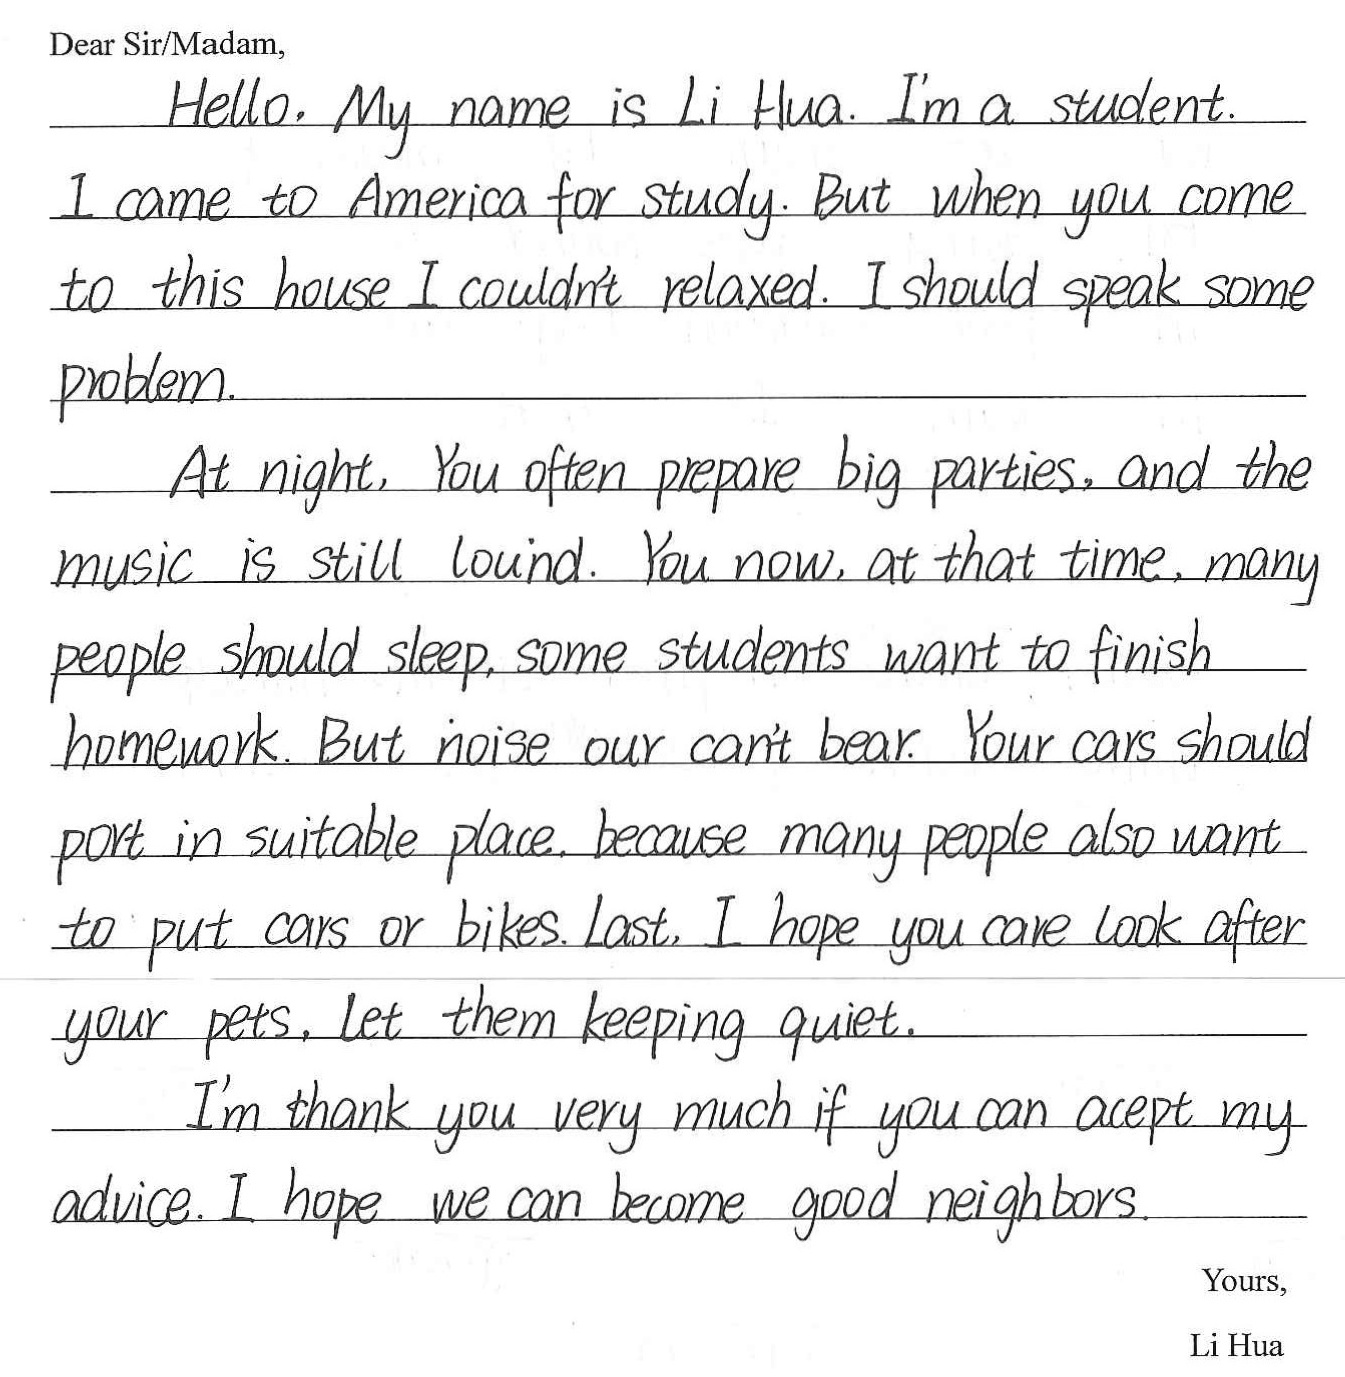 Dear Sir/Madam,
Hello. My name is Li Hua. I'm a student.
I came to America for study. But when you come
to this house I couldn't relaxed. I should speak some
problem.
At night, You often prepare big parties, and the
music is still louind. You now, at that time, many
people should sleep, some students want to finish
homework. But noise our can't bear. Your cars should
port in suitable place, because many people also want
to put cars or bikes. Last, I hope you care look after
your pets, let them keeping quiet.
I'm thank you very much if you can acept my
advice. I hope we can become good neighbors.
Yours,
Li Hua